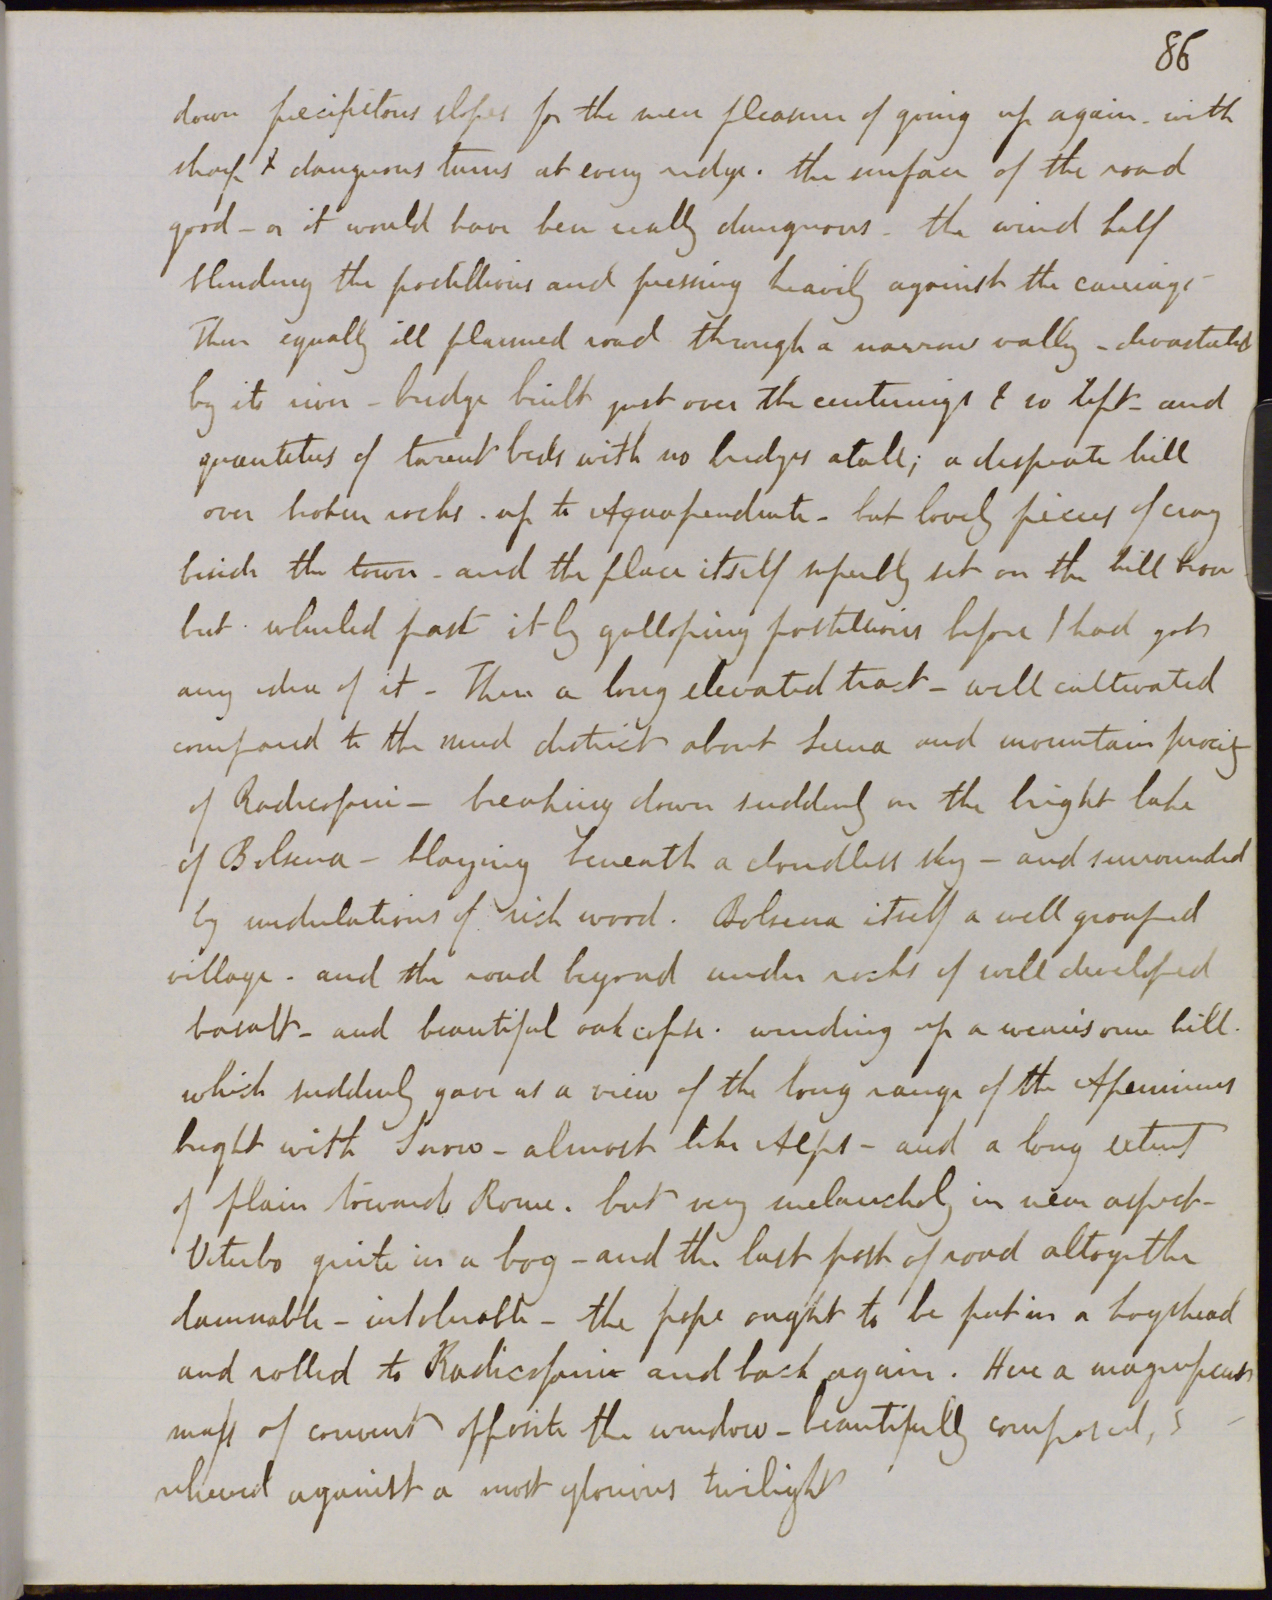 86
down precipitous slopes for the mere pleasure of going up again - with
sharp & dangerous turns at every ridge. the surface of the road
good - or it would have been really dangerous - the wind half
blinding the postillions and pressing heavily against the carriage -
Then equally ill planned road through a narrow valley - devastated
by its river - bridge built just over the centerings & so left - and
quantities of torrent beds with no bridges atall; a desperate hill
over broken rocks . up to Aquapendente - but lovely pieces of crag
beside the town - and the place itself superbly set on the hill brow -
but . whirled past it by galloping postillions before I had got
any idea of it - Then a long elevated tract - well cultivated
compared to the mud district about Siena and mountain
of Radicofani - breaking down suddenly on the bright lake
of Bolsena - blazing beneath a cloudless sky - and surrounded
by undulations of rich wood. Bolsena itself a well grouped
village - and the road beyond under rocks of well developed
basalt - and beautiful oak copse . winding up a wearisome hill .
which suddenly gave us a view of the long range of the Apennines
bright with Snow - almost like Alps - and a long extent
of plain towards Rome . but very melancholy in near aspect -
Viterbo quite in a bog - and the last post of road altogether
damnable - intolerable - the pope ought to be put in a hogshead
and rolled to Radicofani and back again . Here a magnificent
mass of convent opposite the window - beautifully composed,
relieved against a most glorious twilight